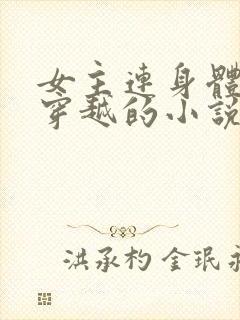 女主連身體
穿越的小說
洪承杓 金珉永